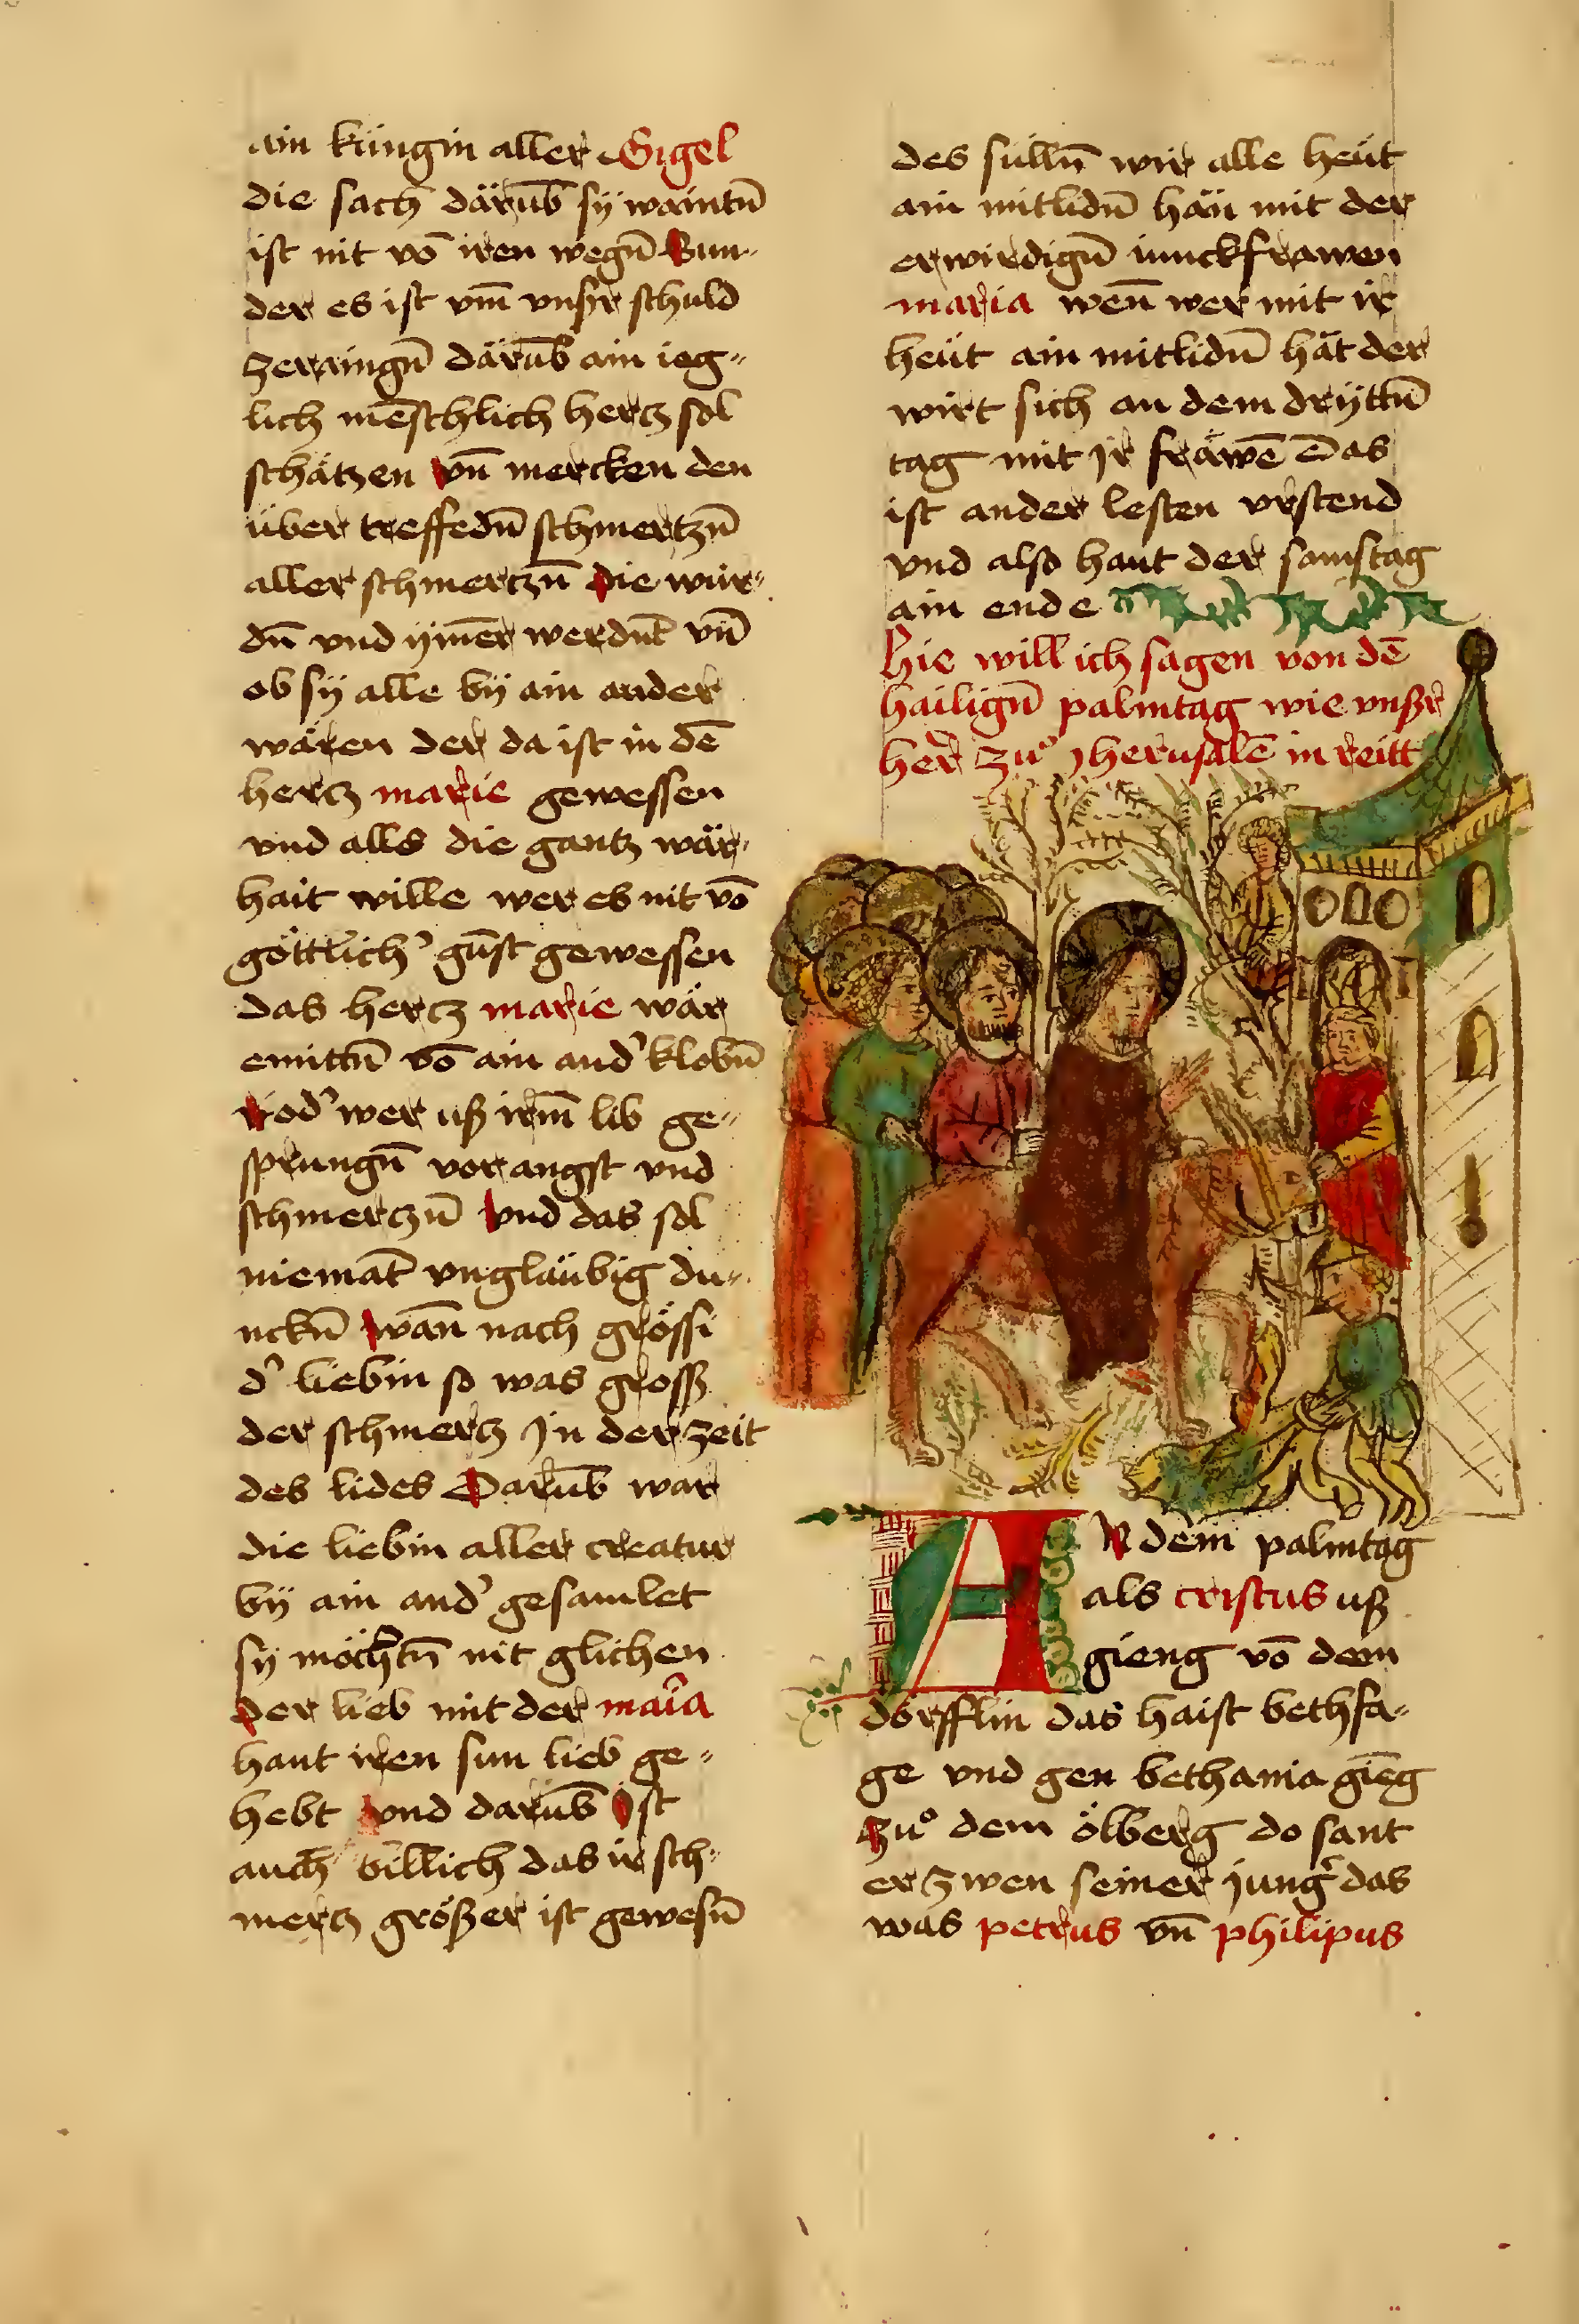 ain küngin aller Sigel
die sach därūb sÿ waintn̄
ist nit vō iren wegn̄ Sun-
der es ist vm̄ vnsꝛ schuld
zerraingn̄ därūb ain ieg-
lich mēschlich hertz sol
schätzen vn̄ mercken den
über treffedn̄ schmertzn̄
aller schmertzn̄ die wur-
dn̄ vnd ÿmēr werdnt vn̄
ob sÿ alle bÿ ain ander
wären der da ist in dē
hertz marie gewessen
vnd alls die gantz wär-
hait wille wer es nit vō
göttlich' gūst gewessen
das hertz marie wär
emittn̄ vō ain and' klobn̄
od' wer uß irm̄ lib ge-
sprungn̄ vor angst vnd
schmerczn̄ vnd das sol
niemāt vngläubig du-
nckn̄ wan̄ nach grössi
d' liebin so was gross
der schmertz Jn der zeit
des lides Darūb war
die liebin aller creatur
bÿ ain and' gesamlet
sÿ möchtn̄ nit glichen
der lieb mit der maria
hant iren sun lieb ge-
hebt vnd darūb Jst
auch billich das ir sch-
mertz größer ist gewesn̄
des sülln̄ wir alle heüt
ain mitlidn̄ hän mit der
erwirdign̄ iunckfrawen
maria wen̄ wer mit ir
heüt ain mitlidn̄ hät der
wirt sich an dem drÿttn̄
tag mit Jr fräwē Das
ist ander lesten vrstend
vnd also haut der samstag
ain ende
Hie will ich sagen von dē
hailign̄ palmtag wie vnßr
her zuͦ Jherusalē in reitt
AN dem palmtag
als cristus uß
gieng vō dem
dörfflin das haist bethfa-
ge vnd gen bethania giēg
zuͦ dem ölberg do sant
er zwen seiner jung' das
was petrus vn̄ philipus